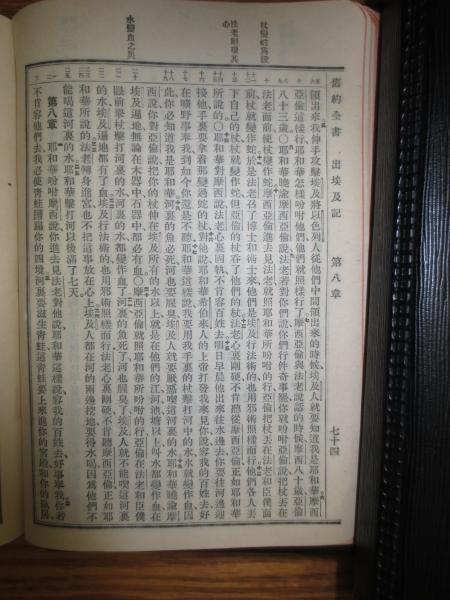 舊約全書　出埃及記　第八章　七十四
杖變蛇爲證
法老剛硬其心
水變血之災
領出來我伸手攻擊埃及將以色列人從他們中間領出來的時候埃及人就要知道我是耶和華摩西
亞倫這樣行耶和華怎樣吩咐他們他們就照樣行了摩西亞倫與法老說話的時候摩西八十歲亞倫
八十三歲〇耶和華曉諭摩西亞倫說法老若對你們說你們行件奇事罷你就吩咐亞倫說把杖丟在
法老面前使杖變作蛇摩西亞倫進去見法老就照耶和華所吩咐的行亞倫把杖丟在法老和臣僕面
前杖就變作蛇於是法老召了博士和術士來他們是埃及行法術的也用邪術照樣而行他們各人丟
下自己的杖杖就變作蛇但亞倫的杖吞了他們的杖法老心裏剛硬不肯聽從摩西亞倫正如耶和華
所說的〇耶和華對摩西說法老心裏固執不肯容百姓去明日早晨他出來往水邊去你要往河邊迎
接他手裏要拿着那變過蛇的杖對他說耶和華希伯來人的上帝打發我來見你說容我的百姓去好
在曠野事奉我到如今你還是不聽耶和華這樣說我要用我手裏的杖擊打河中的水水就變作血因
此你必知道我是耶和華河裏的魚必死河也要腥臭埃及人就要厭惡喫這河裏的水耶和華曉諭摩
西說你對亞倫說把你的杖伸在埃及所有的水以上就是在他們的江河池塘以上叫水都變作血在
埃及遍地無論在木器中石器中都必有血〇摩西亞倫就照耶和華所吩咐的行亞倫在法老和臣僕
眼前舉杖擊打河裏的水河裏的水都變作血了河裏的魚死了河也腥臭了埃及人就不能喫這河裏
的水埃及遍地都有了血埃及行法術的也用邪術照樣而行法老心裏剛硬不肯聽摩西亞倫正如耶
和華所說的法老轉身進宮也不把這事放在心上埃及人都在河的兩邊挖地要得水喝因爲他們不
能喝這河裏的水耶和華擊打河以後滿了七天
第八章　耶和華吩咐摩西說你進去見法老對他說耶和華這樣說容我的百姓去好事奉我你若
不肯容他們去我必使青蛙蹧蹋你的四境河裏要滋生青蛙這青蛙要上來進你的宮殿和你的臥房